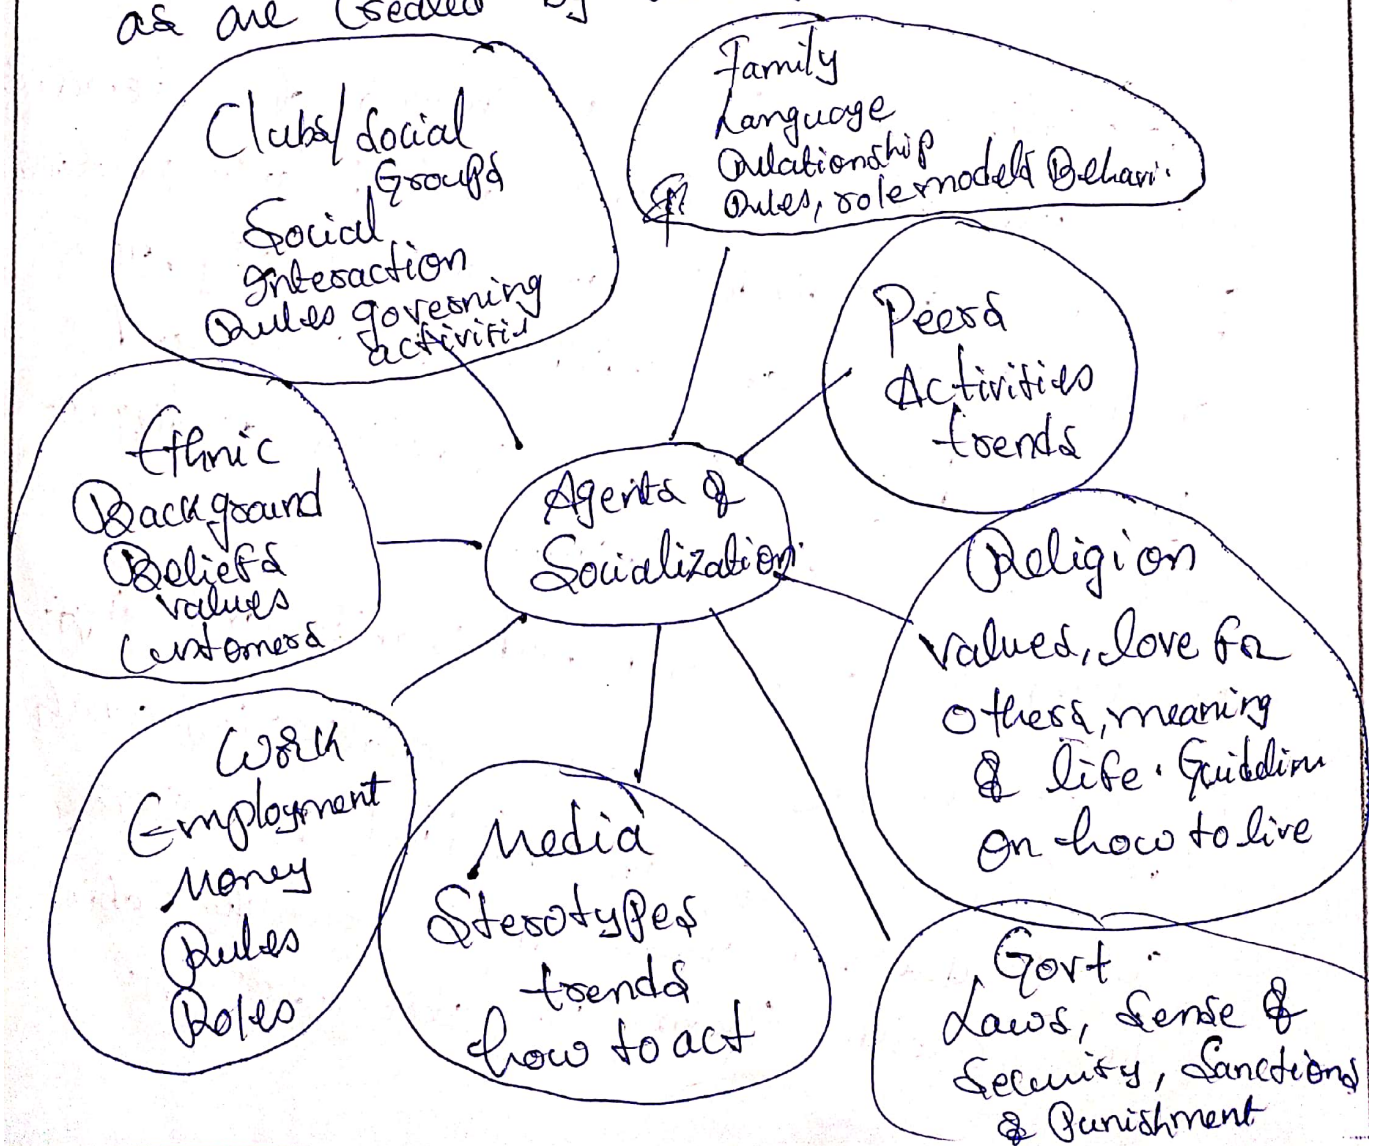 as are created by
Clubs/Social
Groups
Social
Interaction
Rules governing
activitis
Family
Language
Relationship
Rules, role models Behavi.
Peers
Activities
trends
Ethnic
Background
Beliefs
values
Customers
Agents of
Socialization
Religion
values, love for
others, meaning
of life. Guidelin
on how to live
Work
Employment
Money
Rules
Roles
Media
Sterotypes
trends
how to act
Govt.
Laws, Sense of
Security, Sanctions
& Punishment